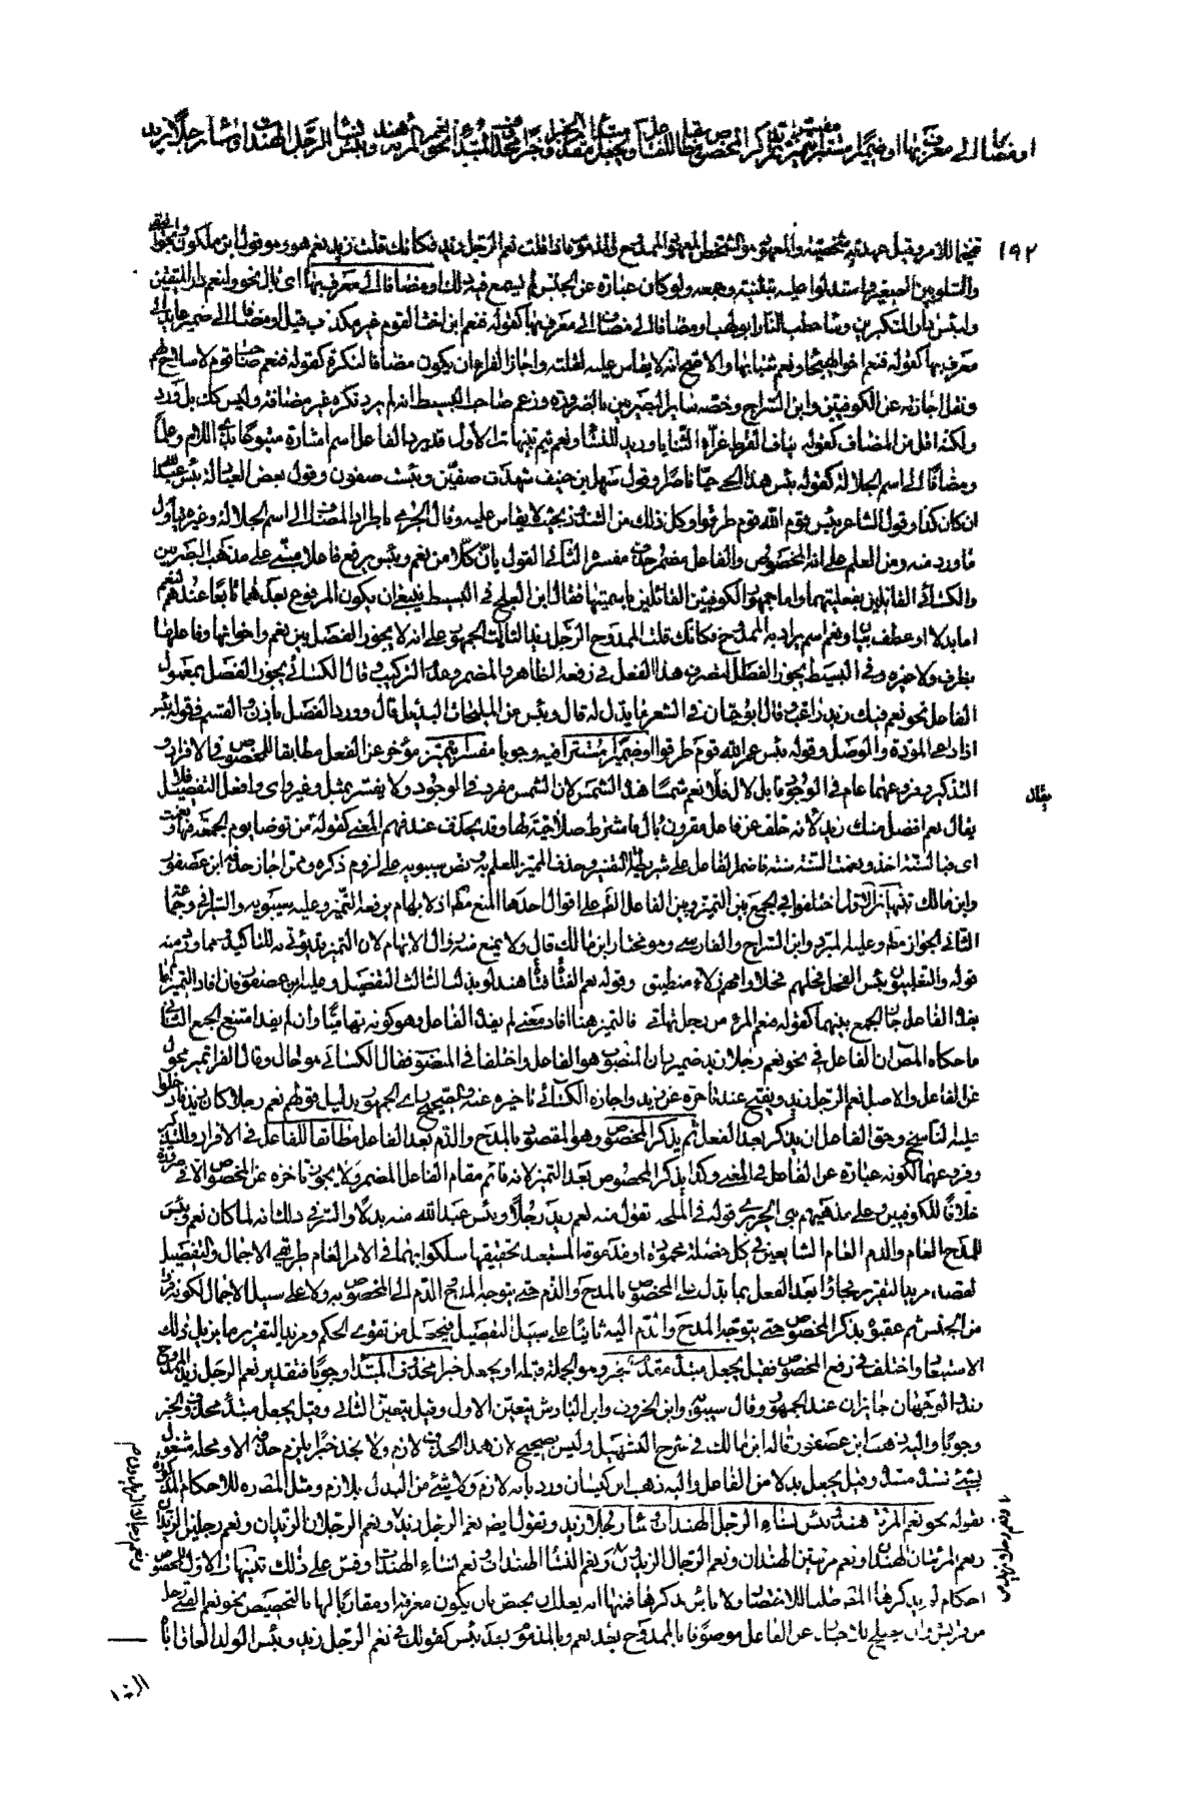 او مضافا الى معرف بها او ضميرا مستترا مفسرا بتمييز ثم يذكر المخصوص مطابقا للفاعل ويجعل مبتدأ مقدم الخبر او خبرا محذوف المبتدأ نحو نعم المرء هند وبئس نساء الرجل الهندات وساء رجلا زيد
١٩٢
اللام وقيل عهدية شخصية والمعهود هو الشخص الممدوح والمذموم فاذا قلت نعم الرجل زيد فكانك قلت زيد نعم هو وهو قول ابن ملكون والجواليقي
والشلوبين الصغير واستدلوا عليه بتثنيته وجمعه ولو كان عبارة عن الجنس لم يسمع فيه ذلك او مضافا الى معرف بها اى بال نحو ولنعم دار المتقين
ولبئس دار المتكبرين وساء حطب النار ابو لهب او مضافا الى مضاف الى معرف بها كقوله فنعم ابن اخت القوم غير مكذب قيل او مضافا الى ضمير عايد الى
معرف بها كقوله فنعم اخو الهيجا ونعم شبابها والاصح انه لا يقاس عليه لقلته واجاز الفرا ان يكون مضافا لنكرة كقوله فنعم صاحب قوم لا سلاح لهم
ونقل اجازته عن الكوفيين وابن السراج وخصه ساير البصريين بالضرورة وزعم صاحب البسيط انه لم يرد نكرة غير مضافة وليس كذلك بل ورد
ولكنه اقل من المضاف كقوله نياف القرط غراء الثنايا وريد للنساء ونعم نيم تنبيهات الاول قد يرد الفاعل اسم اشارة متبوعا بذى اللام وعلما
ومضافا الى اسم الجلالة كقوله بئس هذا الحي حيا ناصرا وقول سهل بن حنيف شهدت صفين وبئست صفون وقول بعض العبادلة بئس عبد الله
ان كان كذا وقول الشاعر بئس قوم الله قوم طرقوا وكل ذلك من الشذوذ بحيث لا يقاس عليه وقال الجرمي باطراد المضاف الى اسم الجلالة وغيره يأول
ما ورد منه ومن العلم على انه المخصوص والفاعل مضمر حذف مفسره الثانى القول بان كلا من نعم وبئس يرفع فاعلا مبني على مذهب البصريين
والكسائى القائلين بفعليتهما واما جمهور الكوفيين القائلين باسميتهما فقال ابن العلج فى البسيط ينبغي ان يكون المرفوع بعدهما تابعا عندهم لنعم
اما بدلا او عطف بيان ونعم اسم يراد به الممدوح فكانك قلت الممدوح الرجل زيد الثالث الجمهور على انه لا يجوز الفصل بين نعم واخواتها وفاعلها
بظرف ولا غيره وفى البسيط يجوز الفصل لتصرف هذا الفعل فى رفعه الظاهر والمضمر وعدم التركيب وقال الكسائى يجوز الفصل بمعمول
الفاعل نحو نعم فيك زيد راغب وقال ابو حيان فى الشعر ما يدل له قال وبئس من المليحات البديل قال وورد الفصل باذن والقسم فى قوله بئس
اذا داعى المودة والوصل وقوله بئس عمر الله قوم طرقوا او ضميرا مستترا فيه وجوبا مفسرا بتمييز مؤخر عن الفعل مطابقا للمخصوص فى الافراد و
التذكير وفروعهما عام فى الوجود قابل لال فلا نعم شمسا هذه الشمس لان الشمس مفرد فى الوجود ولا يفسر بمثل وغير واى وافعل التفضيل فلا
يقال
يقال نعم افضل منك زيد لانه خلف عن فاعل مقرون بال فاشترط صلاحيته لها وقد يحذف عند فهم المعنى كقوله من توضا يوم الجمعة فبها ونعمت
اى فبالسنة اخذ ونعمت السنة سنة فاضمر الفاعل على شريطة التفسير وحذف المميز للعلم به ونص سيبويه على لزوم ذكره وممن اجاز حذفه ابن عصفور
وابن مالك تنبيهان الاول اختلفوا فى الجمع بين التمييز وبين الفاعل الظاهر على اقوال احدها المنع مطلقا اذ لا ابهام يرفعه التمييز وعليه سيبويه والسيرافى وجماعة
الثانى الجواز مطلقا وعليه المبرد وابن السراج والفارسى وهو مختار ابن مالك قال ولا يمنع منه زوال الابهام لان التمييز قد يؤتى به للتاكيد ومما ورد منه
قوله والتغلبيون بئس الفحل فحلهم فحلا وامهم زلاء منطيق وقوله نعم الفتاة فتاة هند لو بذلت الثالث التفصيل وعليه ابن عصفور فان افاد التمييز ما لم
يفده الفاعل جاز الجمع بينهما كقوله فنعم المرء من رجل تهامى فالتمييز هنا افاد معنى لم يفده الفاعل وهو كونه تهاميا وان لم يفد امتنع الجمع الثانى
ما حكاه المصـ ان الفاعل فى نحو نعم رجلا زيد ضمير بان المنصوب هو الفاعل واختلفا فى المنصوب فقال الكسائى هو حال وقال الفرا تمييز محول
عن الفاعل والاصل نعم الرجل زيد ويقبح عنده تاخره عن زيد واجازه الكسائى تاخيره عنه والصحيح راى الجمهور بدليل قولهم نعم رجلا كان زيد فادخلوا
عليه الناسخ وحق الفاعل ان يذكر بعد الفعل ثم يذكر المخصوص وهو المقصود بالمدح والذم بعد الفاعل مطابقا للفاعل فى الافراد والتذكير
وفروعهما لكونه عبارة عن الفاعل فى المعنى وكذا يذكر المخصوص بعد التمييز لانه قائم مقام الفاعل المضمر ولا يجوز تاخره عن المخصوص الا فى ضرورة
خلافا للكوفيين وعلى مذهبهم بنى الحريرى قوله فى الملحة تقول منه نعم زيد رجلا وبئس عبد الله منه بدلا والسر فى ذلك انه لما كان نعم وبئس
للمدح العام والذم العام الشايعين فى كل خصلة محمودة او مذمومة المستبعد تحقيقها سلكوا بهما فى الامر العام طريقى الاجمال والتفصيل
لقصد مزيد التقرير فجاؤا بعد الفعل بما يدل على المخصوص بالمدح والذم حتى يتوجه المدح والذم الى المخصوص به اولا على سبيل الاجمال لكونه فردا
من الجنس ثم عقبوه بذكر المخصوص حتى يتوجه المدح والذم اليه ثانيا على سبيل التفصيل فيحصل من تقوى الحكم ومزيد التقرير ما يزيل ذلك
الاستبعاد واختلف فى رفع المخصوص فقيل يجعل مبتدأ مقدم الخبر وهو الجملة قبله او يجعل خبرا محذوف المبتدأ وجوبا فتقدير نعم الرجل زيد الممدوح
زيد الوجهان جايزان عند الجمهور وقال سيبويه وابن الخروف وابن الباذش يتعين الاول وقيل يتعين الثانى وقيل يجعل مبتدأ محذوف الخبر
وجوبا واليه ذهب ابن عصفور قال ابن مالك فى شرح التسهيل وليس بصحيح لان هذا الحذف لازم ولا نجد خبرا يلزم حذفه الا ومحله مشغول
بشيء يسد مسده وقيل يجعل بدلا من الفاعل واليه ذهب ابن كيسان ورد بانه لازم ولا شئ من البدل بلازم ومثل المصـ لهذه الاحكام المذكورة
بقوله نحو نعم المرء هند وبئس نساء الرجل الهندات وساء رجلا زيد وتقول ايضا نعم الرجل زيد ونعم الرجلان الزيدان ونعم رجلين الزيدان
ونعم المرئتان الهندان ونعم مرئتين الهندان ونعم الرجال الزيدون ونعم النساء الهندات ونعم نساء الهندات وقس على ذلك تنبيهات الاول للمخصوص
احكام لم يذكرها المصـ طلبا للاختصار ولا بأس بذكرها فمنها انه يختص بان يكون معرفة او مقاربا لها بالتخصيص نحو نعم الفتى رجل
من قريش وان يصلح للاخبار عن الفاعل موصوفا بالممدوح بعد نعم وبالمذموم بعد بئس كقولك فى نعم الرجل زيد وبئس الولد العاق اباه